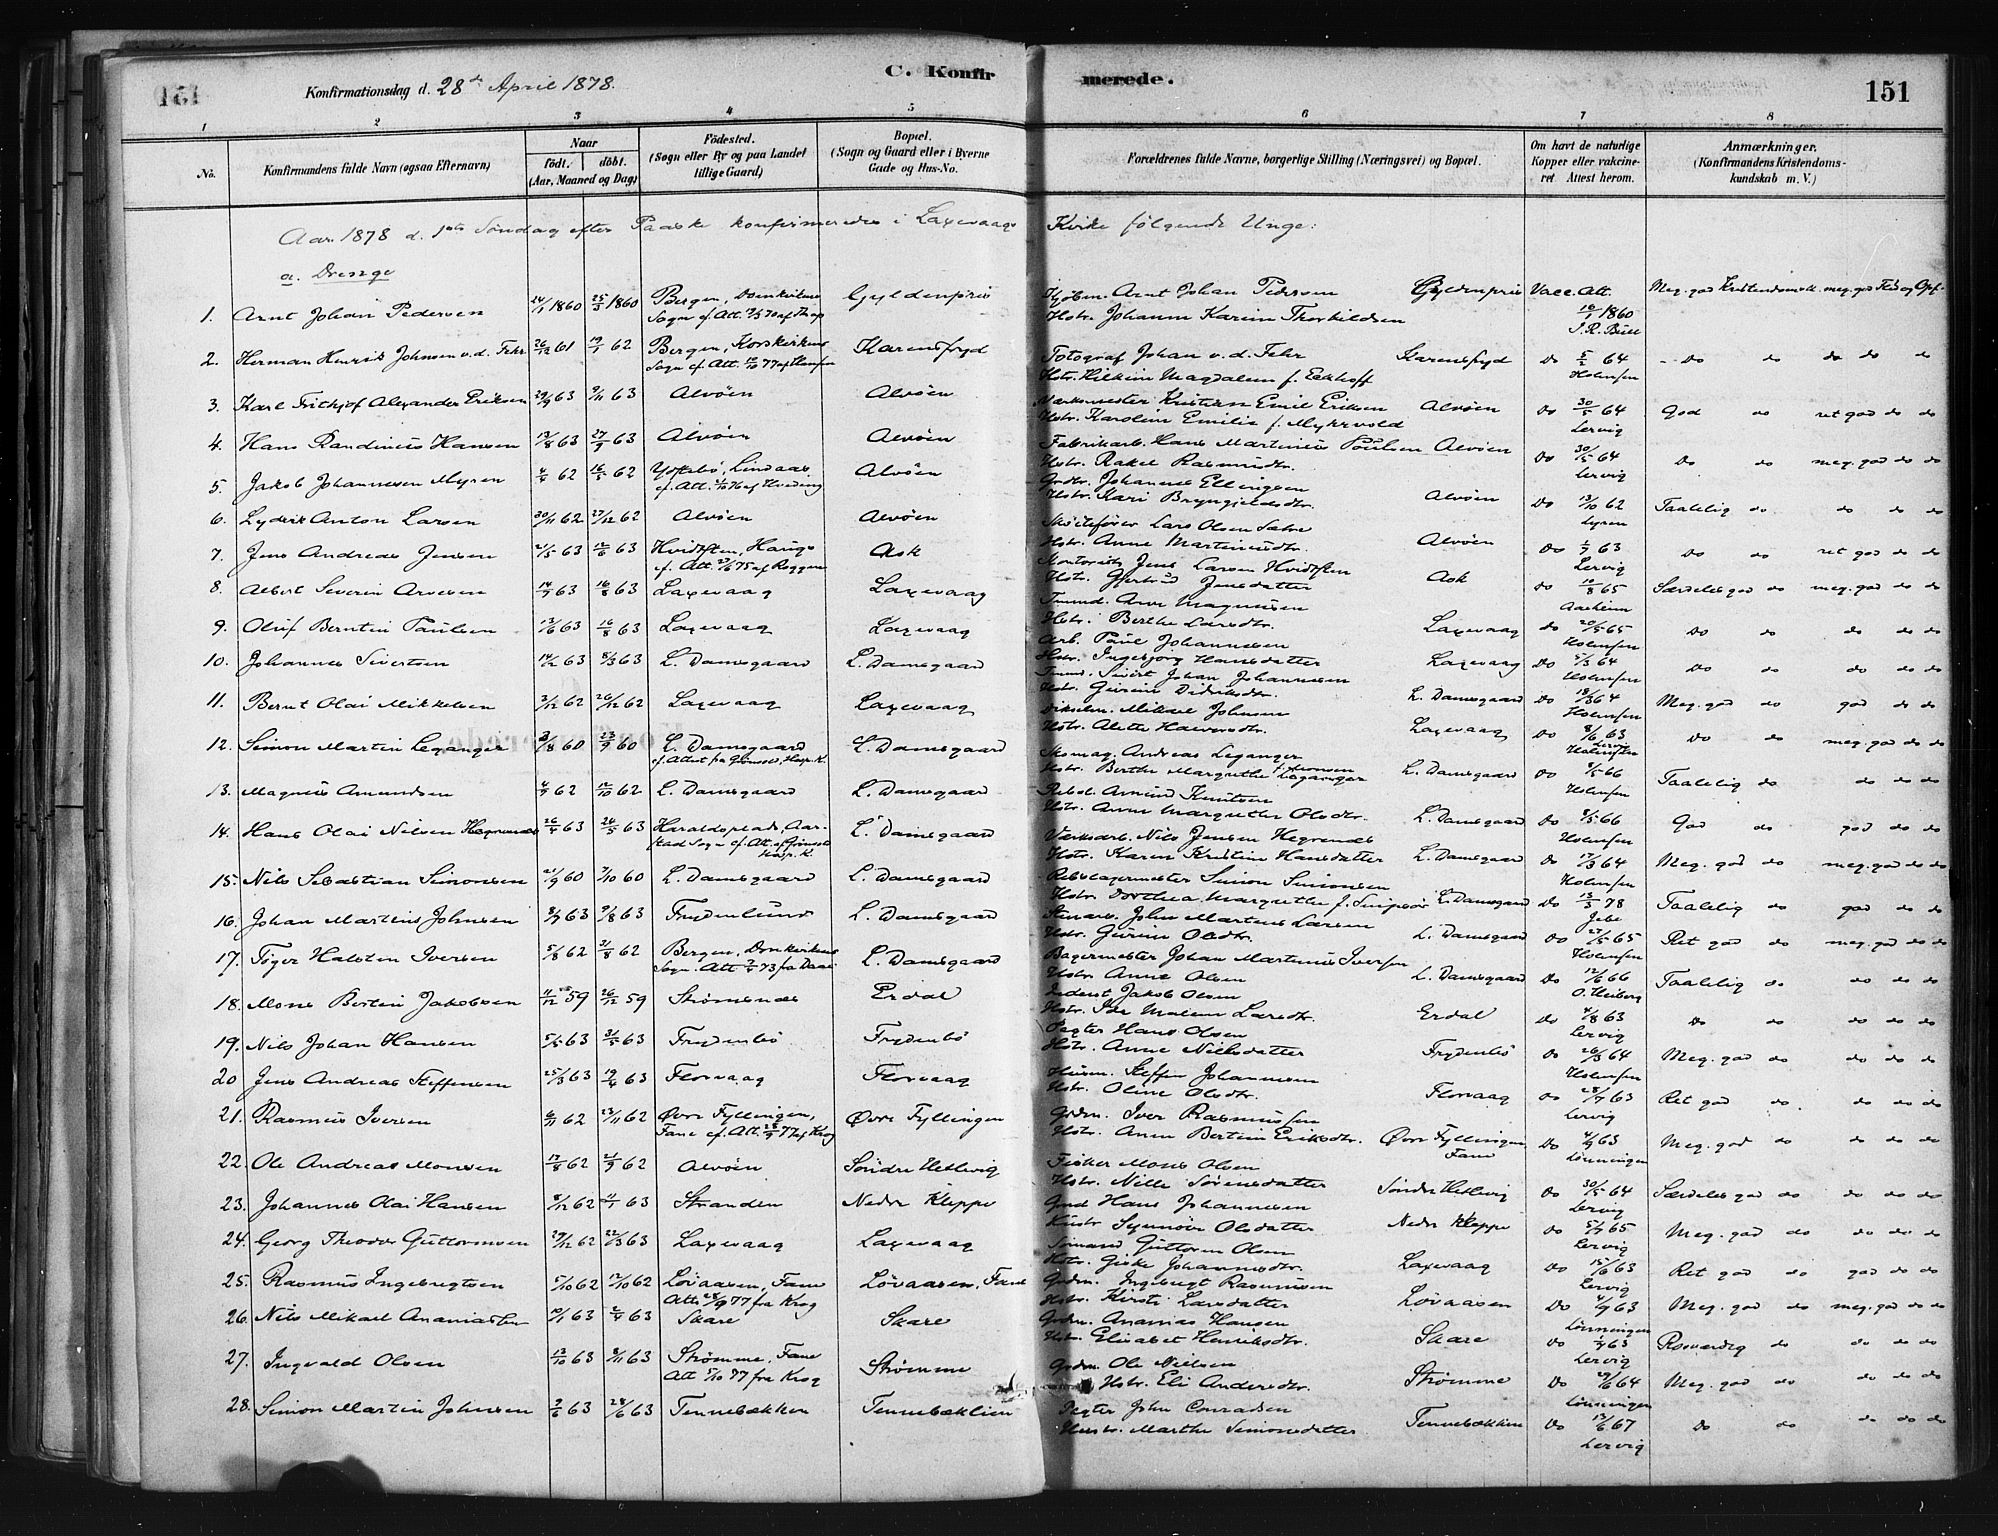 151
Konfirmationsdag d. 28de April 1878.
C. Konfirmerede.
151
1 2 3 4 5 6 7 8
No.
Konfirmandens fulde Navn (ogsaa Efternavn)
Naar
födt. döbt.
(Aar, Maaned og Dag)
Födested.
(Sogn eller By og paa Landet tillige Gaard)
Bopæl.
(Sogn og Gaard eller i Byerne Gade og Hus-No.
Forældrenes fulde Navne, borgerlige Stilling (Næringsvei) og Bopæl.
Om havt de naturlige Kopper eller vakcineret Attest herom.
Anmærkninger.
(Konfirmandens Kristendomskundskab m. V.)
Aar 1878 d. 1ste Søndag efter Paaske konfirmeredes i Laxevaags Kirke følgende Unge:
a. Drenge
1. Arnt Johan Pedersen 24/1 1860 25/3 1860 Bergen, Domkirkens Sogn Gyldenpris Arnt Johan Pedersen Gyldenpris Vacc. Att. 1860 J.R. Bull
Hstr. Johanne Karine Thorkildsen
2. Herman Henrik Johnsen v.d. Fehr 26/12 61 19/1 62 Bergen, Korskirkens Sogn Karensfryd Fotograf Johan v.d. Fehr Karensfryd Do 5/2 64 Holmsen Do do do do do
Magdalene f. Eckhoff
3. Karl Frithjof Alexander Eriksen 29/9 63 9/11 63 Alvöen Alvöen Kristian Emil Eriksen Alvöen Do 30/5 64 Lervig God do ret god do do
Hstr. Karoline Emilie f. Myhrvold
4. Hans Randinius Hansen 13/8 63 27/9 63 Alvöen Alvöen Fabrikarb. Hans Martinius Poulsen Alvöen Do 30/5 64 Lervig Do do meg. god do do
Hstr. Rakel Rasmusdtr.
5. Jakob Johannesen Myren 4/4 62 16/5 62 Lindaas Alvöen Johannes Ellingsen Alvöen Do 13/10 62 Lyren Taalelig do do do do
Hstr. Kari Bryngjelsdtr.
6. Lyder Anton Larsen 30/11 62 27/12 62 Alvöen Alvöen Lars Olsen Alvöen Do 1/7 63 Lervig Do do ret god do do
Hstr. Anne Martinusdtr.
7. Jens Andreas Jensen 21/5 63 12/6 63 Hvidsten, Hougs Ask Jens Larsen Hvidsten Ask Do 10/8 65 Aarheim Særdeles god do meg. god do do
Hstr. Gjertrud Jensdatter
8. Albert Severin Arvesen 14/7 63 16/8 63 Laxevaag Laxevaag Arve Magnussen Laxevaag do 20/5 65 Holmsen Do do do do do
Hstr. Berthe Larsdtr.
9. Oluf Berntin Paulsen 13/6 63 16/8 63 Laxevaag Laxevaag Arb. Paul Johannessen Laxevaag Do 5/3 64 Holmsen Do do do do do
Hstr. Ingeborg Hansdatter
10. Johannes Sivertsen 14/2 63 8/3 63 L. Damsgaard L. Damsgaard Sivert Johan Johannessen L. Damsgaard Do 18/3 64 Holmsen Meg. god do god do do
Hstr. Gurine Didriksdtr.
11. Bernt Olai Mikkelsen 3/12 62 26/12 62 Laxevaag Laxevaag Mikael Johnsen Laxevaag Do 8/6 63 Lervig Do do meg. god do do
Hstr. Alette
12. Simon Martin Leganger 3/8 60 23/9 60 L. Damsgaard L. Damsgaard Skomag. Andreas Leganger L. Damsgaard Do 8/5 66 Holmsen Taalelig do do do do
Hstr. Berthe Margrethe Leganger
13. Magnus Amundsen 4/9 62 12/10 62 L. Damsgaard L. Damsgaard Amund Knutsen L. Damsgaard Do 8/5 66 Holmsen God do god do do
Hstr. Anne Margrethe Olsdtr.
14. Hans Olai Nilsen Hegrenæs 26/4 63 24/5 63 Haraldsplads, Aarstad Sogn L. Damsgaard Værksarb. Nils Jensen Hegrenæs L. Damsgaard Do 17/3 64 Holmsen Meg. god do meg. god do do
Hstr. Karen Kristine Hansdatter
15. Nils Sebastian Simonsen 21/9 60 7/10 60 L. Damsgaard L. Damsgaard Rebslagermester Simon Simonsen L. Damsgaard Do 13/3 78 Jebe Taalelig do god do do
Hstr. Dorthea Margrethe
16. Johan Martinus Johnsen 8/7 63 9/8 63 Frydenlund L. Damsgaard John Martinus Larsen L. Damsgaard Do 27/5 65 Holmsen Ret god do meg. god do do
Hstr. Gurine Olsdtr.
17. Halsten Iversen 5/8 62 31/8 62 Bergen, Domkirkens Sogn L. Damsgaard Bagermester Johan Martinus Iversen L. Damsgaard Do 12/6 66 O. Heiberg Taalelig do do do do
Hstr. Anne Olsen
18. Mons Bertin Jakobsen 11/12 59 26/12 59 Strømsnæs Erdal Inderst Jakob Olsen Erdal Do 4/8 63 Lervig Do do do do do
Hstr. Ide Malene Larsdtr.
19. Nils Johan Hansen 5/5 63 31/5 63 Frydenbö Frydenbö Pagter Hans Olsen Frydenbö Do 26/3 64 Holmsen Meg. god do do do do
Hstr. Anne Nielsdatter
20 Jens Andreas Steffensen 25/3 63 19/4 63 Florvaag Florvaag Husm. Steffen Johannesen Florvaag Do 28/7 63 Lervig Ret god do do do do
Hstr. Oline Olsdtr.
21. Rasmus Iversen 6/11 62 23/11 62 Øvre Fyllingen, Fane Øvre Fyllingen Grdm. Iver Rasmussen Øvre Fyllingen Fane Do 4/9 63 Lönningen Meg. god do do do do
Hstr. Anne Bertine Eriksdtr.
22. Ole Andreas Monsen 13/8 62 21/9 62 Alvöen Söndre Hetlevig Fisker Mons Olsen Söndre Hetlevig Do 30/5 64 Lervig Særdeles god do do do do
Hstr. Nille Sörensdatter
23. Johannes Olai Hansen 8/12 62 11/1 63 Stranden Nedre Kleppe Hans Johannessen Nedre Kleppe Do 5/7 65 Lervig Meg. god do do do do
Synnöve Olsdatter
24. Georg Theodor Guttormsen 29/12 62 22/3 63 Laxevaag Laxevaag Sömand Guttorm Olsen Laxevaag Do 15/6 63 Lervig Ret god do god do do
Hstr. Giske Johannesdtr.
25. Rasmus Ingebrigtsen 5/10 62 12/10 62 Lövaasen, Fane Lövaasen, Fane Grdm. Ingebrigt Rasmussen Lövaasen Do 4/9 63 Lönningen Meg. god do meg. god do do
Hstr. Kirsti Larsdatter
26. Nils Mikael Ananiassen 10/1 63 2/4 63 Skare Skare Grdm. Ananias Hansen Skare Do 1/7 63 Lervig Rosværdig do do do do
Hstr. Elisabet Henriksdtr.
27. Ingvald Olsen 13/10 63 8/11 63 Strömme, Fane Strömme Grdm. Ole Nielsen Strömme Do 29/6 64 Lönningen Meg. god do do do do
Hstr. Eli Andersdtr.
28. Simon Martin Johnsen 2/6 63 28/6 63 Tennebækken Tennebækken Pagter John Conradsen Tennebækken Do 13/6 67 Lervig Do do do do do
Marthe Simonsdatter